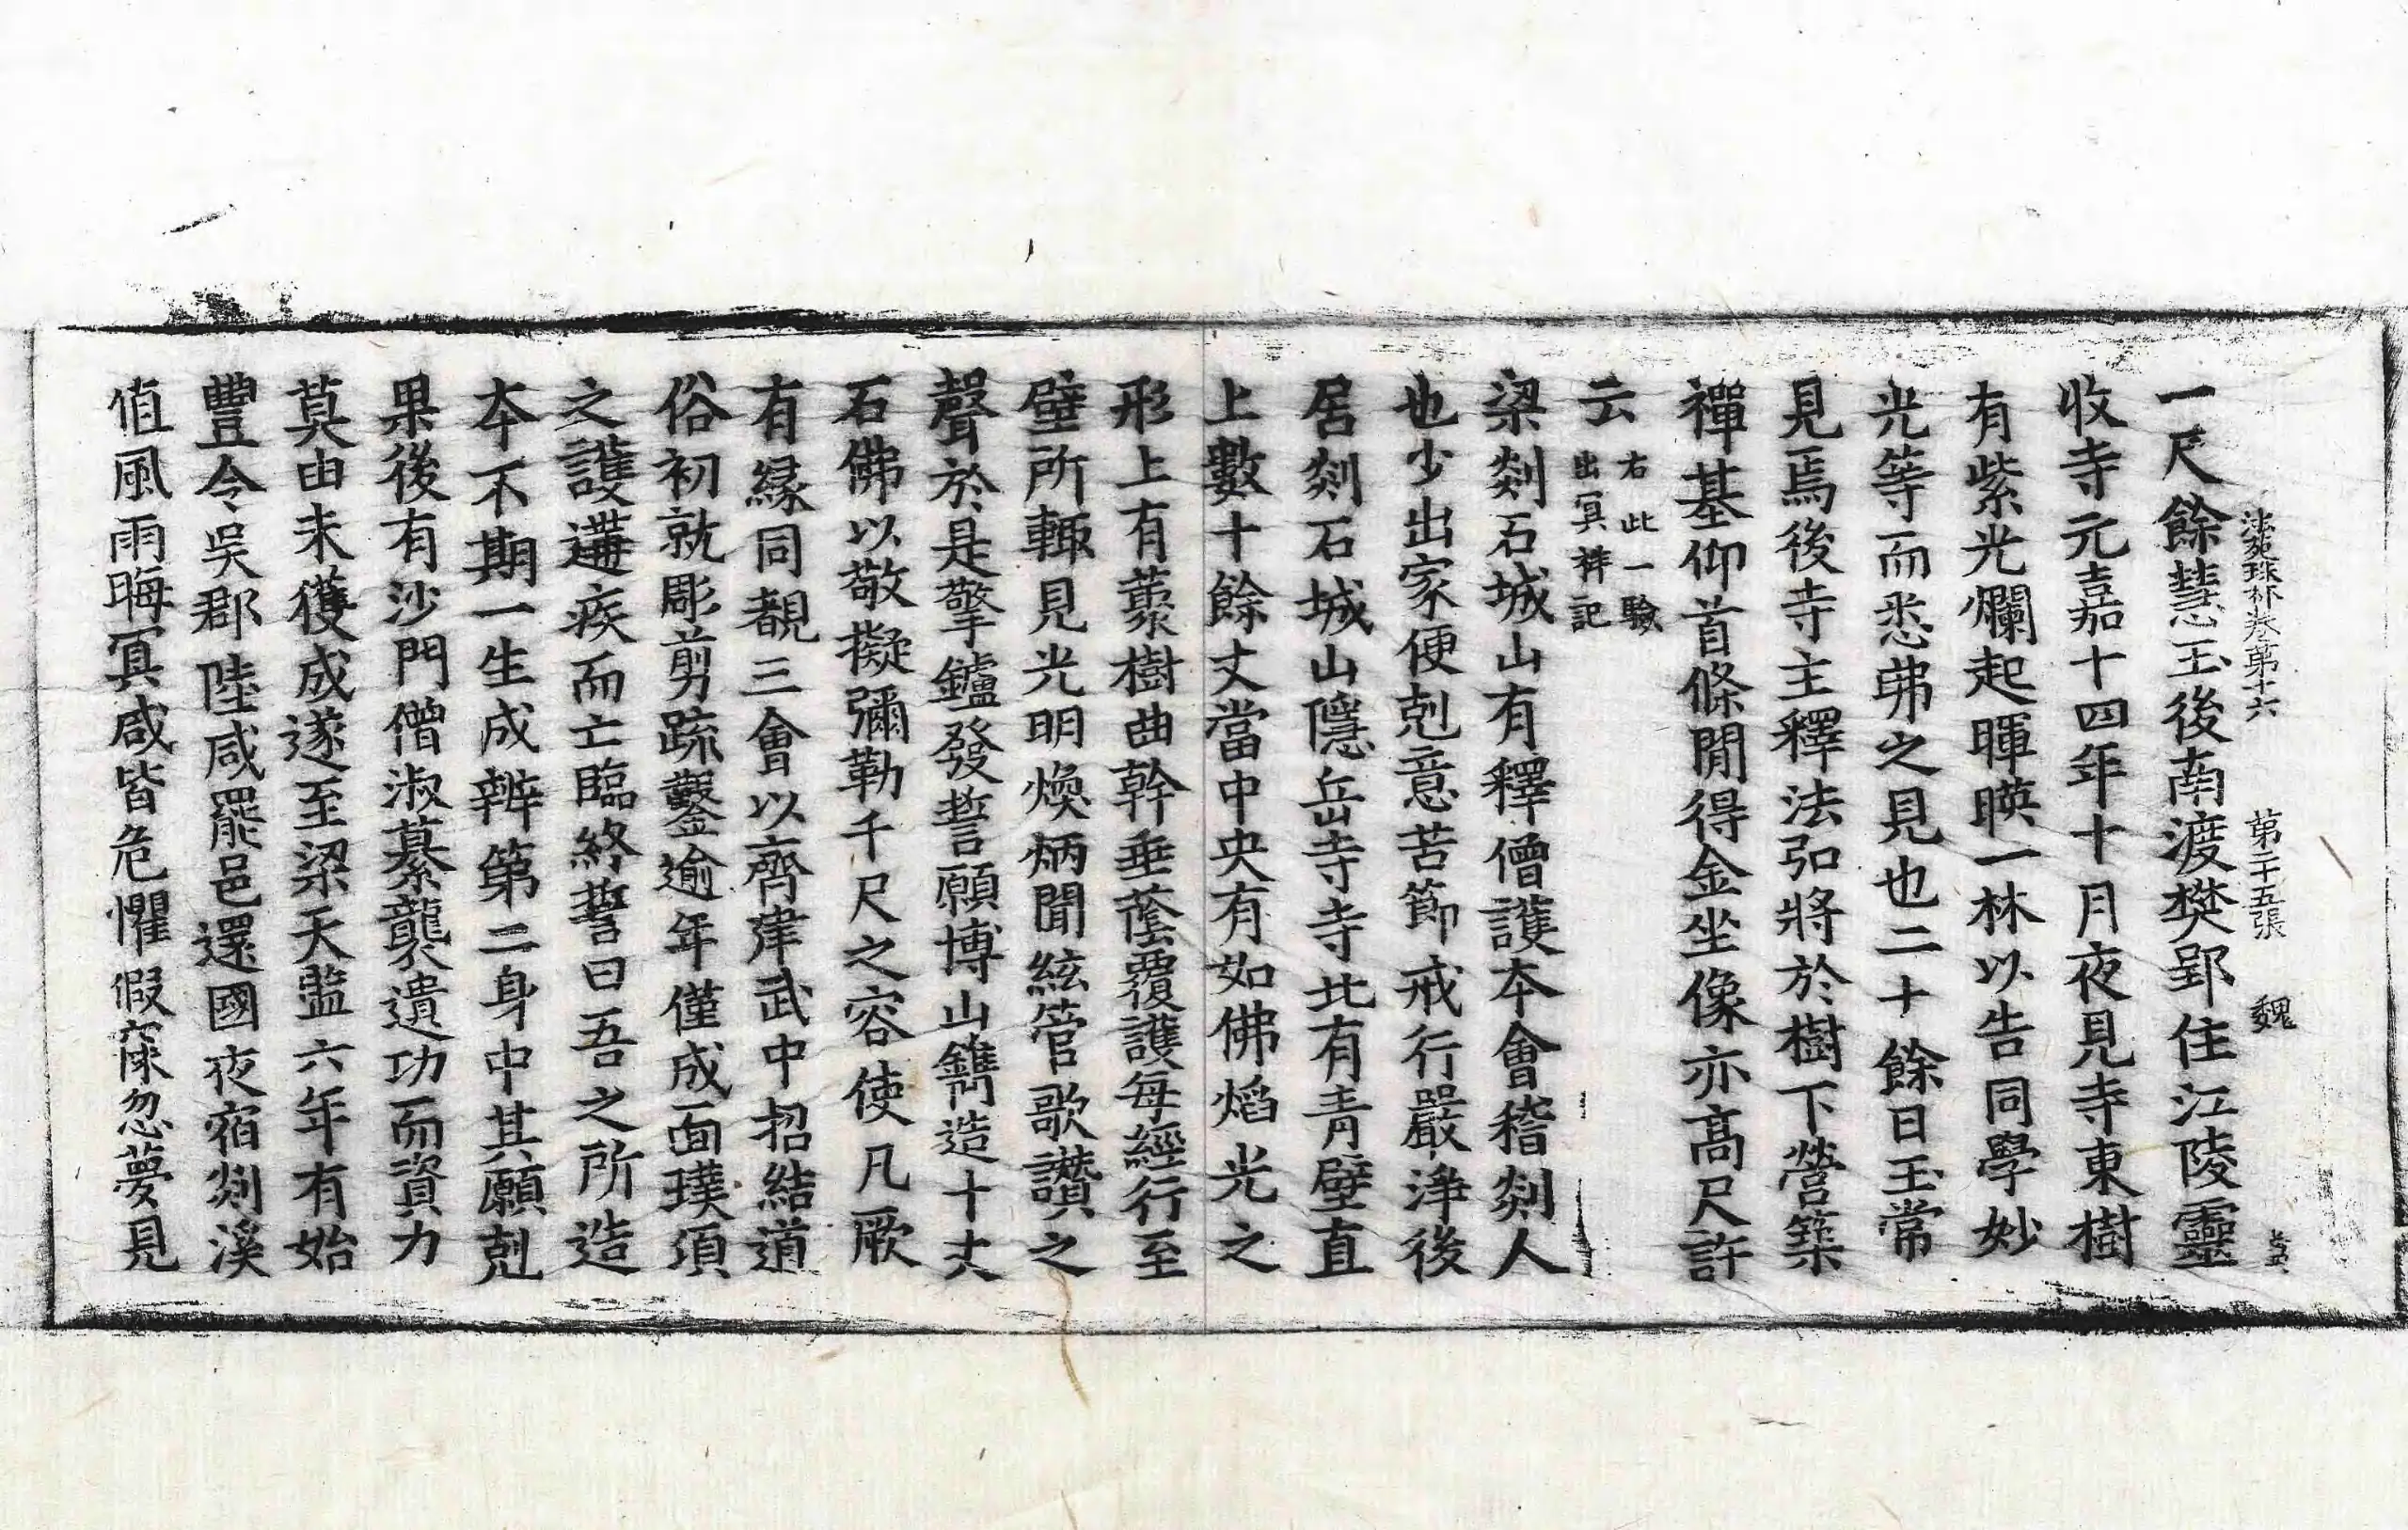 法苑珠林卷第十六 第二十五張 魏
一尺餘慧玉後南渡樊郢住江陵靈
收寺元嘉十四年十月夜見寺東樹
有紫光爛起暉暎一林以告同學妙
光等而悉弗之見也二十餘日玉常
見焉後寺主釋法弘將於樹下營築
禪基仰首條閒得金坐像亦高尺許
云 右此一驗出冥祥記
梁剡石城山有釋僧護本會稽剡人
也少出家便剋意苦節戒行嚴淨後
居剡石城山隱岳寺寺北有青壁直
上數十餘丈當中央有如佛焰光之
形上有藂樹曲幹垂蔭覆護每經行至
壁所輒見光明煥炳聞絃管歌讚之
聲於是擎鑪發誓願博山鐫造十丈
石佛以敬擬彌勒千尺之容使凡厥
有緣同覩三會以齊建武中招結道
俗初就彫剪疏鑿逾年僅成面璞湏
之護遘疾而亡臨終誓曰吾之所造
本不期一生成辦第二身中其願剋
果後有沙門僧淑纂襲遺功而資力
莫由未獲成遂至梁天監六年有始
豐令吳郡陸咸罷邑還國夜宿剡溪
值風雨晦冥咸皆危懼假寐忽夢見